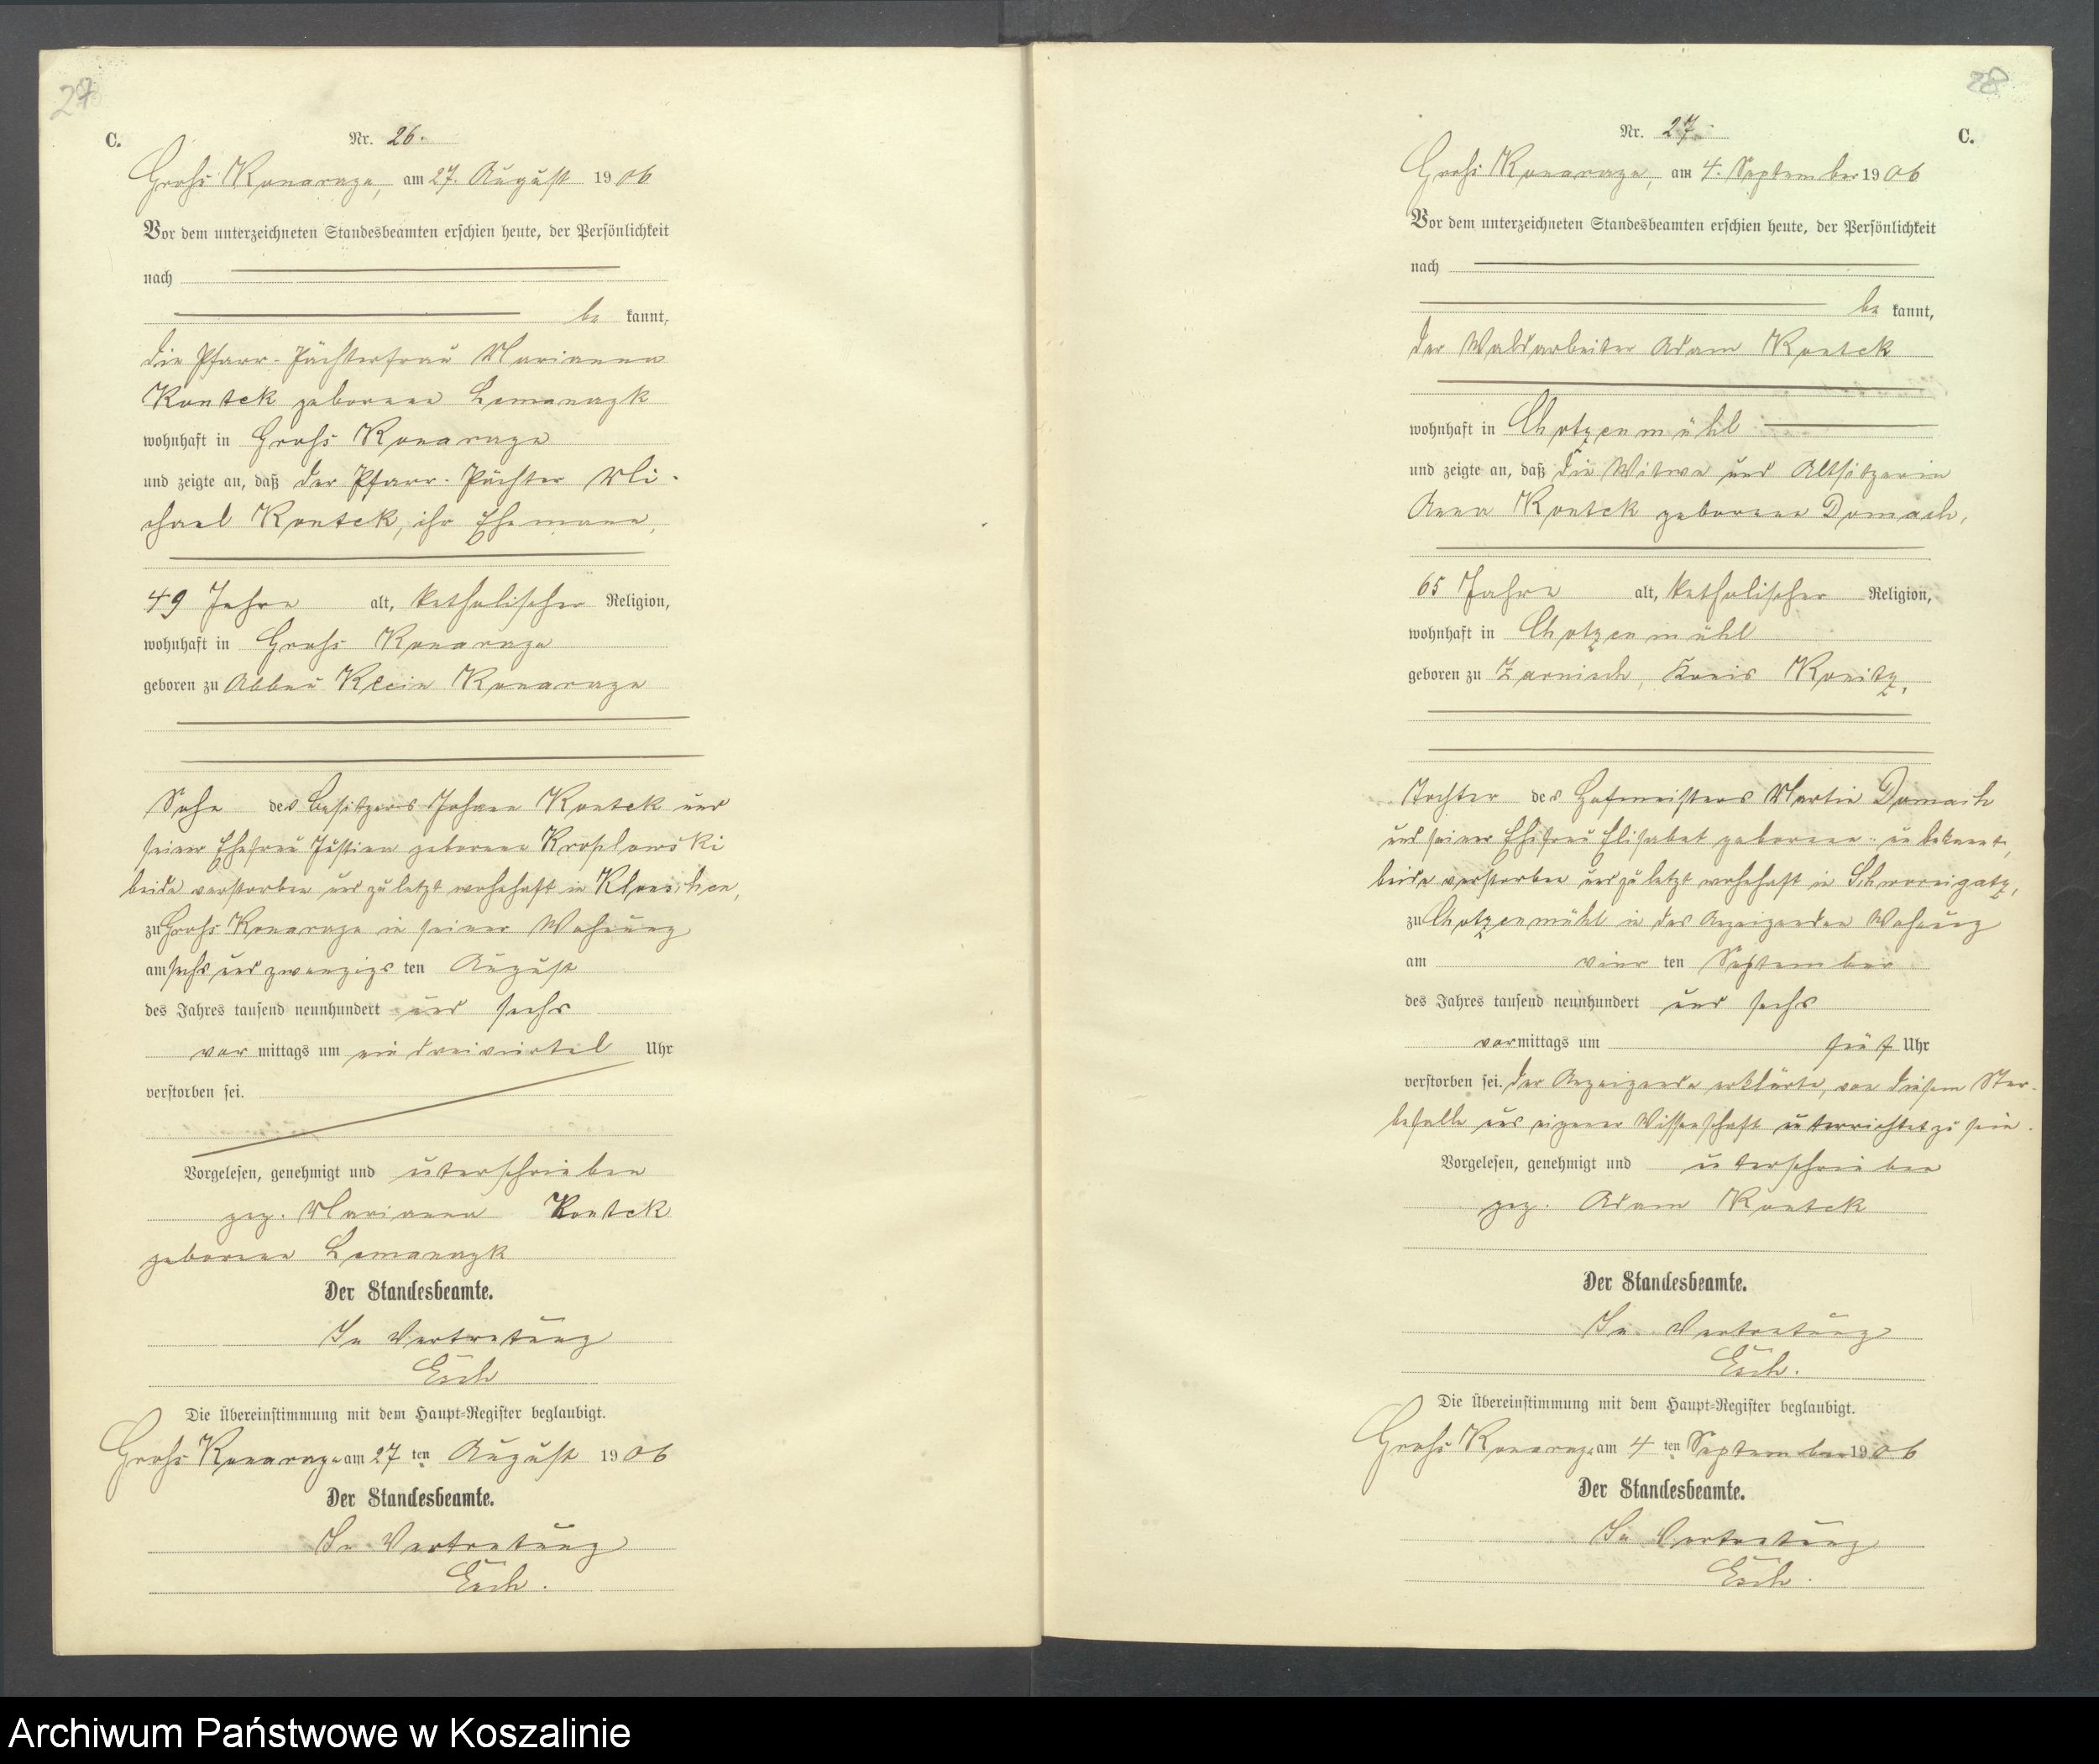 27
C.
Nr. 26.
Groß Konarzyn, am 27. August 1906
Vor dem unterzeichneten Standesbeamten erschien heute, der Persönlichkeit
nach
be kannt,
die Pfarr-Pächterfrau Marianna
Kontek geborene
wohnhaft in Groß Konarzyn
und zeigte an, daß der Pfarr-Pächter Mi-
chael Kontek, ihr Ehemann,
49 Jahre alt, katholischer Religion,
wohnhaft in Groß Konarzyn
geboren zu Abbau Klein Konarzyn
Sohn des Besitzers Johann Kontek und
seiner Ehefrau Justina geborene
beide verstorben und zuletzt wohnhaft in Klonschen,
zu Groß Konarzyn in seiner Wohnung
am sechs und zwanzigs ten August
des Jahres tausend neunhundert und sechs
vor mittags um ein dreiviertel Uhr
verstorben sei.
Vorgelesen, genehmigt und unterschrieben
gez. Marianna Kontek
geborene
Der Standesbeamte.
In Vertretung
Esch
Die Übereinstimmung mit dem Haupt-Register beglaubigt.
Groß Konarzyn am 27 ten August 1906
Der Standesbeamte.
In Vertretung
Esch.
28
Nr. 27.
C.
Groß Konarzyn, am 4. September 1906
Vor dem unterzeichneten Standesbeamten erschien heute, der Persönlichkeit
nach
be kannt,
der Waldarbeiter Adam Kontek
wohnhaft in Chotzenmühl
und zeigte an, daß die Witwe und Altsitzerin
Anna Kontek geborene Domach,
65 Jahre alt, katholischer Religion,
wohnhaft in Chotzenmühl
geboren zu Zarnisch, Kreis Konitz,
Tochter des Hofmeisters Martin Domach
und seiner Ehefrau Elisabet geborene: unbekannt,
beide verstorben und zuletzt wohnhaft in Schwornigatz,
zu Chotzenmühl in des Anzeigenden Wohnung
am vier ten September
des Jahres tausend neunhundert und sechs
vormittags um fünf Uhr
verstorben sei. Der Anzeigende erklärte, von diesem Ster-
befalle aus eigener Wissenschaft unterrichtet zu sein.
Vorgelesen, genehmigt und unterschrieben
gez. Adam Kontek
Der Standesbeamte.
In Vertretung
Esch.
Die Übereinstimmung mit dem Haupt-Register beglaubigt.
Groß Konarzyn am 4 ten September 1906
Der Standesbeamte.
In Vertretung
Esch.
Archiwum Państwowe w Koszalinie